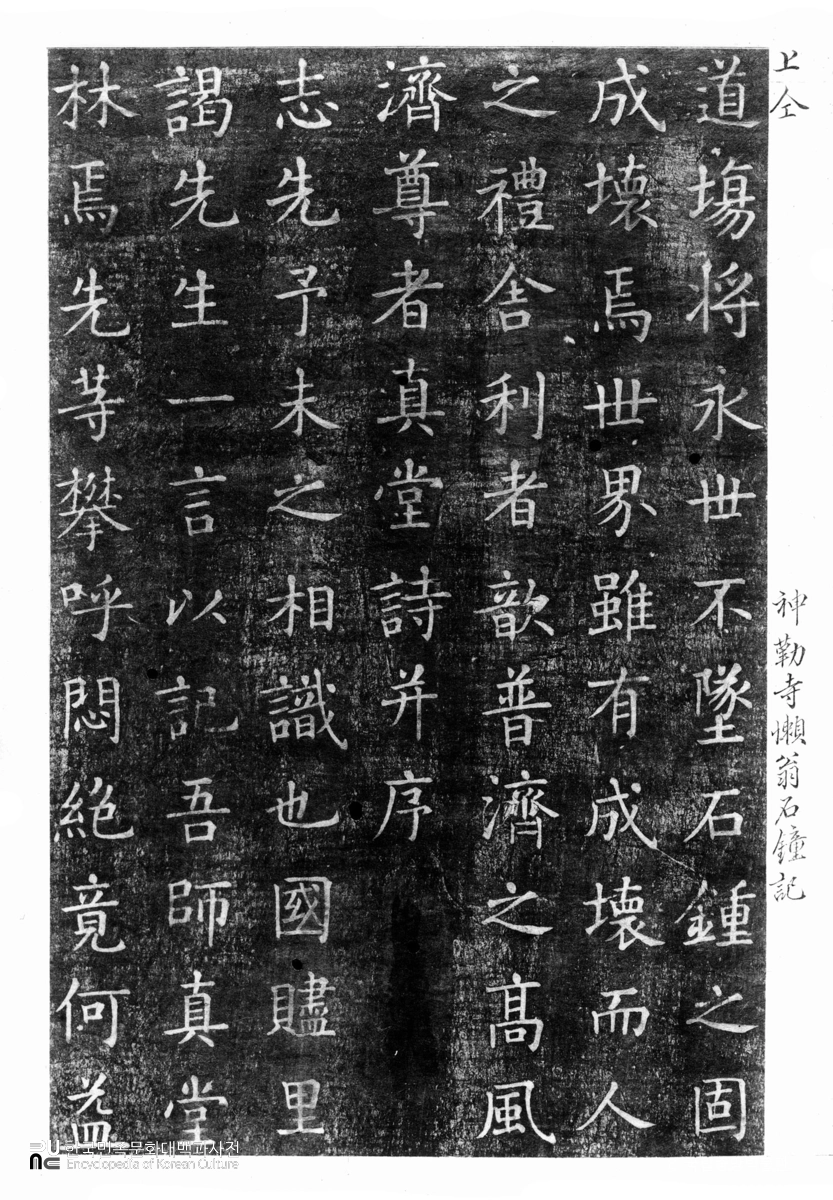 上仝
神勒寺懶翁石鐘記
道塲将永丗不墜石鍾之固
成壞焉丗界雖有成壞而人
之禮舍利者歆普濟之髙風
濟尊者真堂詩并序
志先予未之相識也國贐里
謁先生一言以記吾師真堂
林焉先等攀呼悶絶竟何益
한국민족문화대백과사전
Encyclopedia of Korean Culture